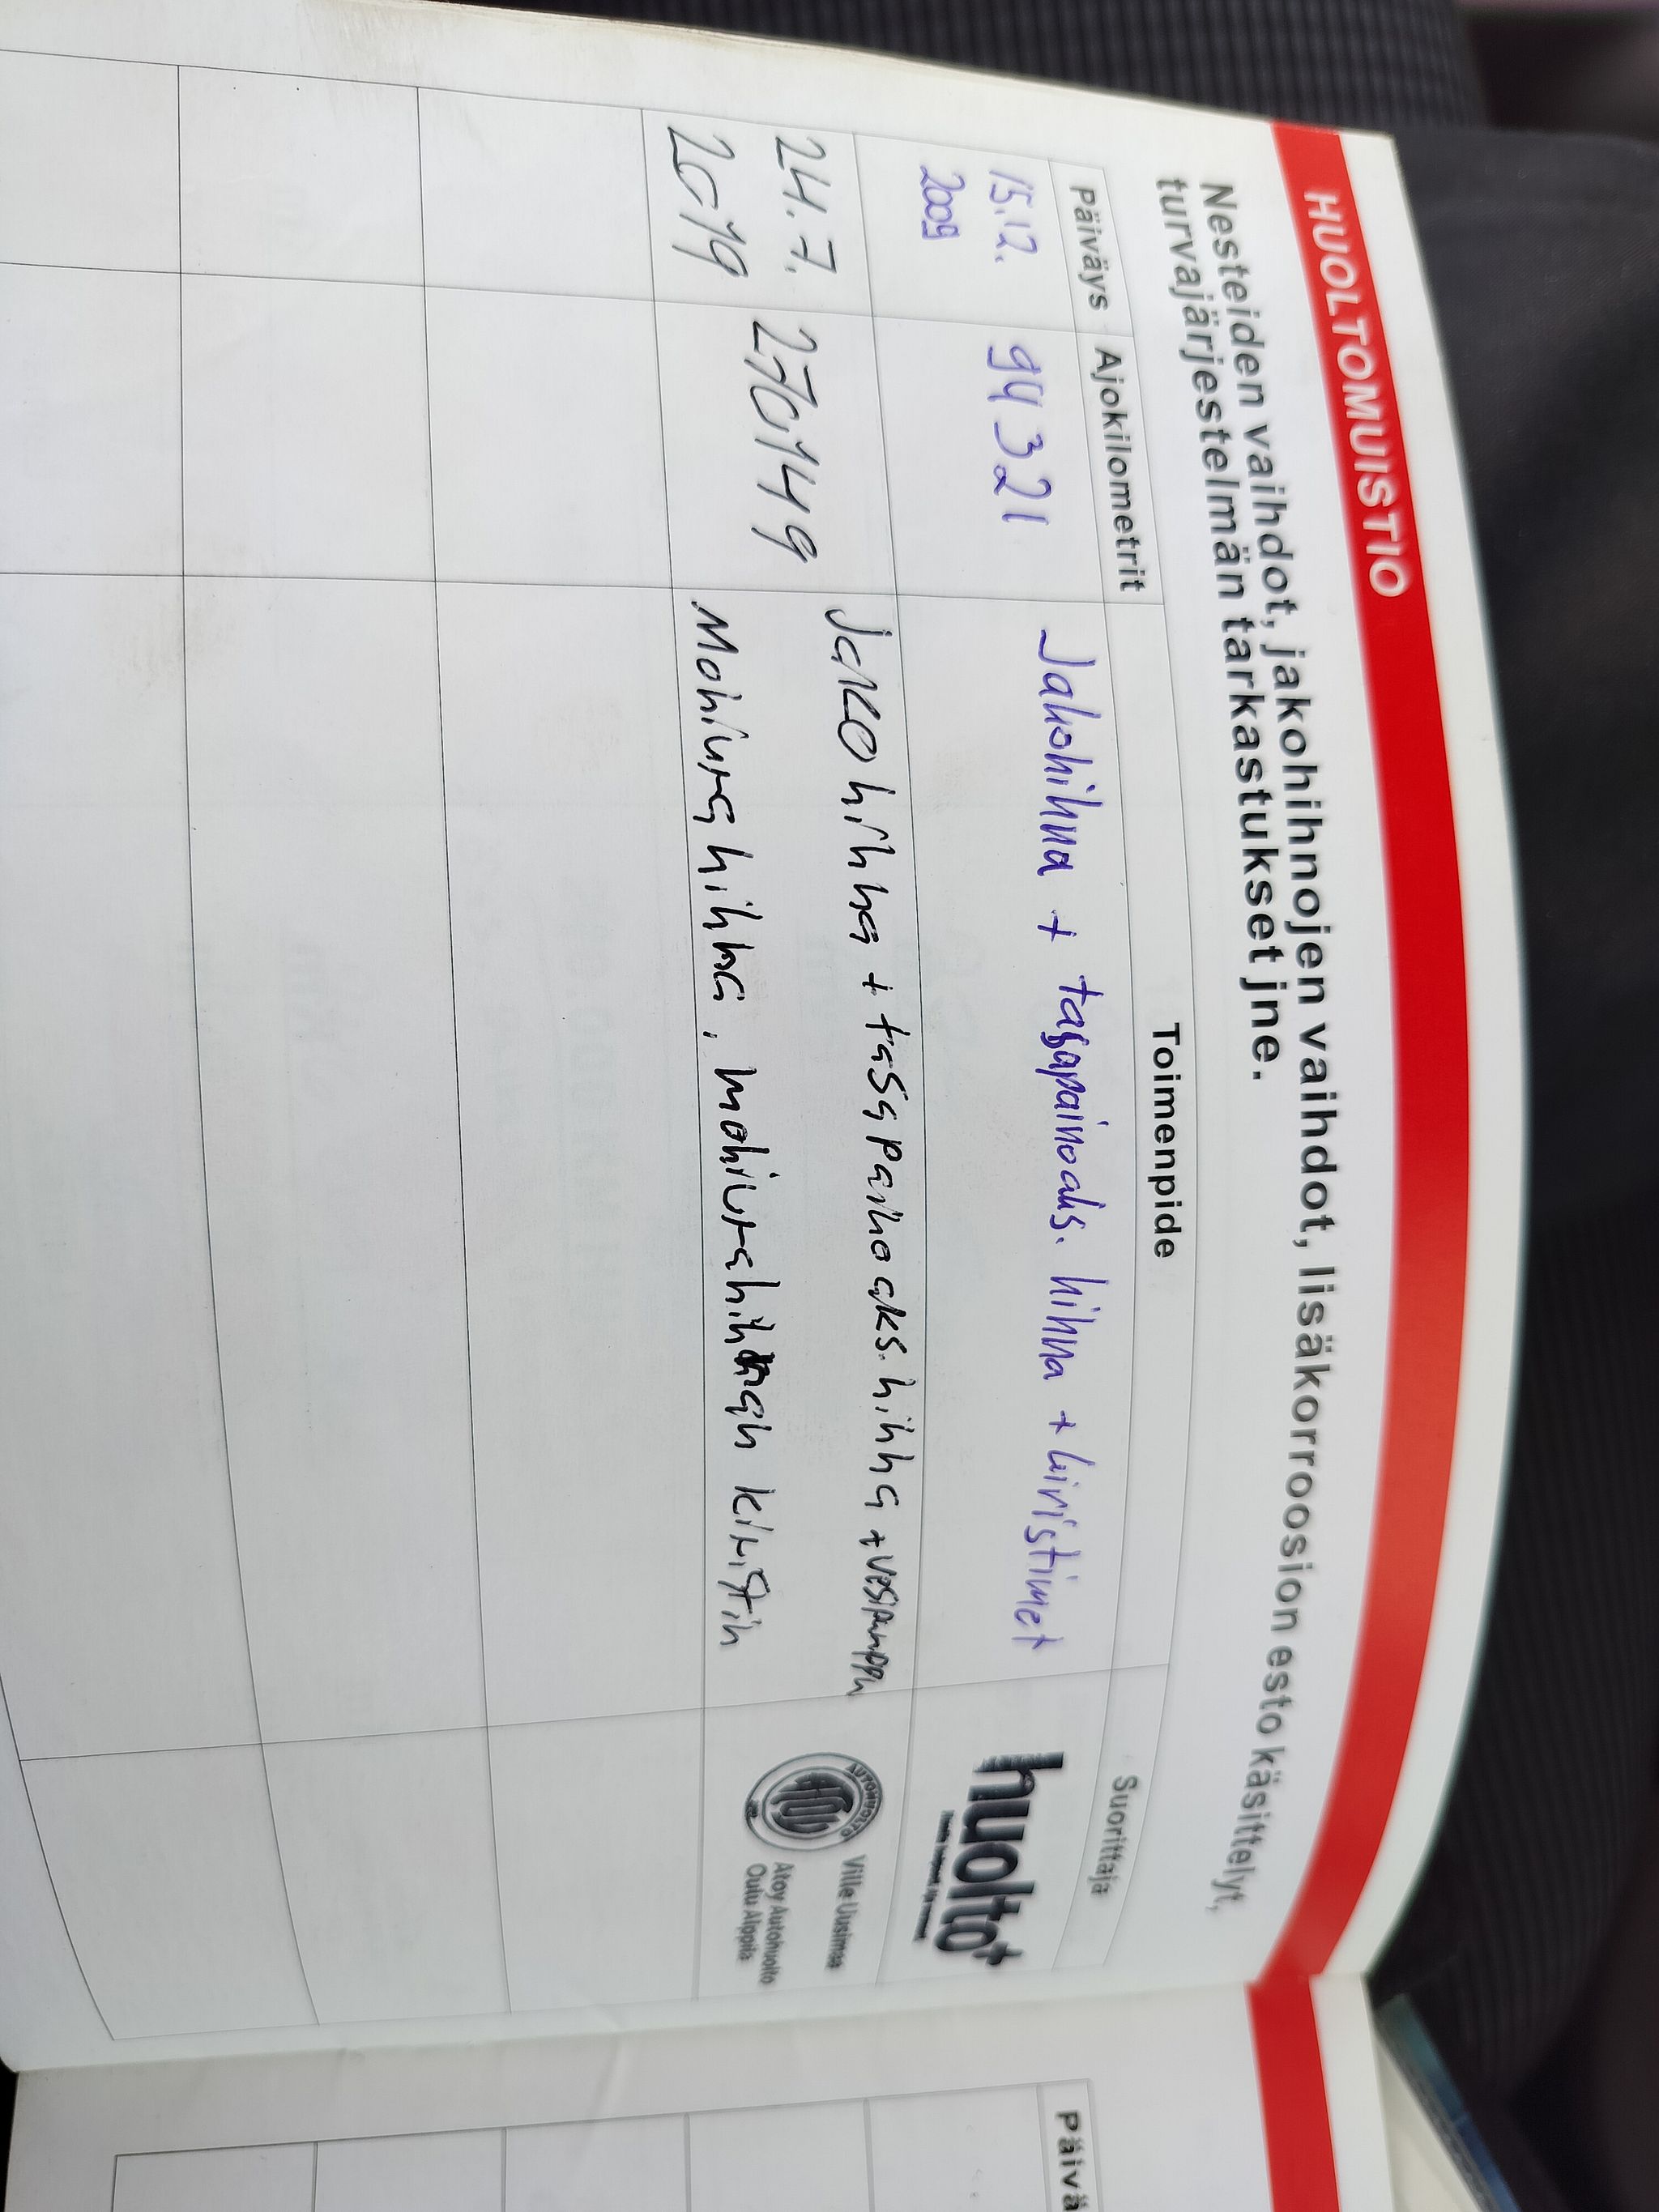 HUOLTOMUISTIO
Nesteiden vaihdot, jakohihnojen vaihdot, lisäkorroosion esto käsittelyt,
turvajärjestelmän tarkastukset jne.
Päiväys Ajokilometrit Toimenpide Suorittaja
15.12. 2009 94 321 Jakohihna + tasapainoaks. hihna + kiristimet huolto+
24.7. 2019 270149 Jakohihna + tasapainoaks. hihna + vesipumppu
Moniurahihna, moniurahihnan kiristin
AUTOHUOLTO
Ville Uusimaa
Atoy Autohuolto
Oulu Alppila
Päivä